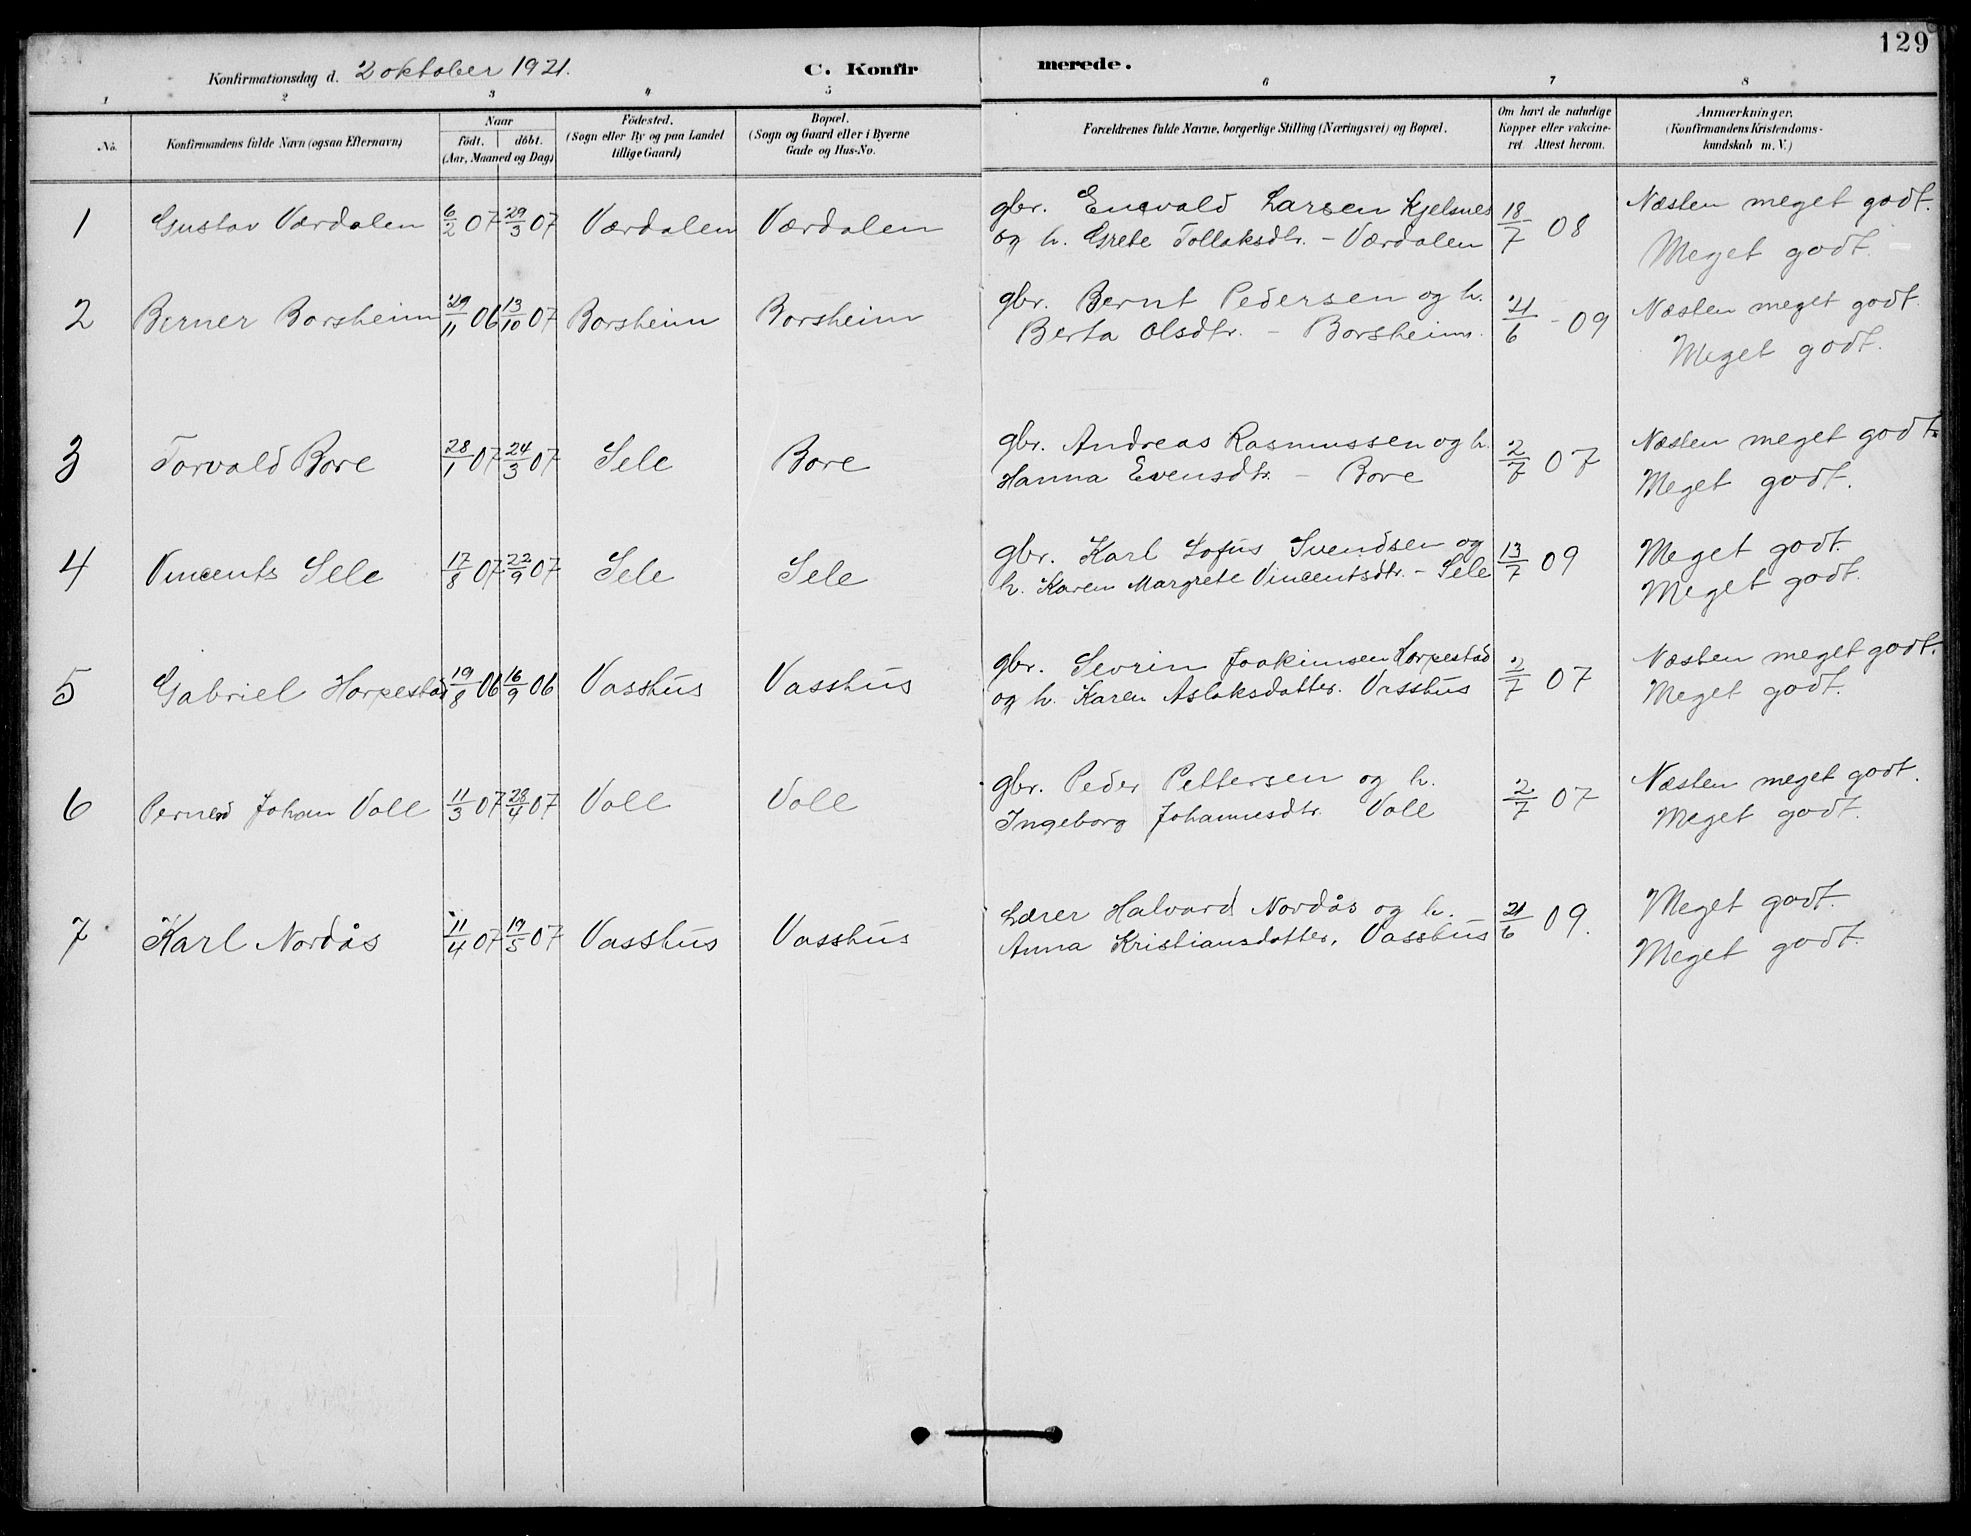 129
Konfirmationsdag d. 2 oktober 1921.
C. Konfirmerede.
1 2 3 4 5 6 7 8
No.
Konfirmandens fulde Navn (ogsaa Efternavn)
Naar
födt. döbt.
(Aar, Maaned og Dag)
Födested.
(Sogn eller By og paa Landet
tillige Gaard)
Bopæl.
(Sogn og Gaard eller i Byerne
Gade og Hus-No.
Forældrenes fulde Navne, borgerlige Stilling (Næringsvei) og Bopæl.
Om havt de naturlige
Kopper eller vakcine-
ret. Attest herom.
Anmærkninger.
(Konfirmandens Kristendoms-
kundskab m. V.)
1 Gustav Værdalen 6/2 07 29/3 07 Værdalen Værdalen
gbr. Enevald Larsen Kjelsnes
og h. Grete Tollaksdtr. – Værdalen
18/7 08
Næsten meget godt.
Meget godt.
2 Berner Borsheim 29/11 06 13/10 07 Borsheim Borsheim
gbr. Bernt Pedersen og h.
Berta Olsdtr. – Borsheim.
21/6 - 09
Næsten meget godt.
Meget godt.
3 Torvald Bore 28/1 07 24/3 07 Sele Bore
gbr. Andreas Rasmussen og h.
Hanna Evensdtr. – Bore
2/7 07
Næsten meget godt.
Meget godt.
4 Vincents Sele 17/8 07 22/9 07 Sele Sele
gbr. Karl Lofus Svendsen og
h. Karen Margrete Vincentsdtr. – Sele
13/7 09
Meget godt.
Meget godt.
5 Gabriel Horpestad 19/8 06 16/9 06 Vasshus Vasshus
gbr. Sevrin Joakimsen Horpestad
og h. Karen Aslaksdatter. Vasshus
2/7 07
Næsten meget godt.
Meget godt.
6 Johan Voll 11/3 07 28/4 07 Voll Voll
gbr. Peder Pettersen og h.
Ingeborg Johannesdtr. Voll
2/7 07
Næsten meget godt.
Meget godt.
7 Karl Nordås 11/4 07 19/5 07 Vasshus Vasshus
Lærer Halvard Nordås og h.
Anna Kristiansdatter, Vasshus
21/6 09.
Meget godt.
Meget godt.